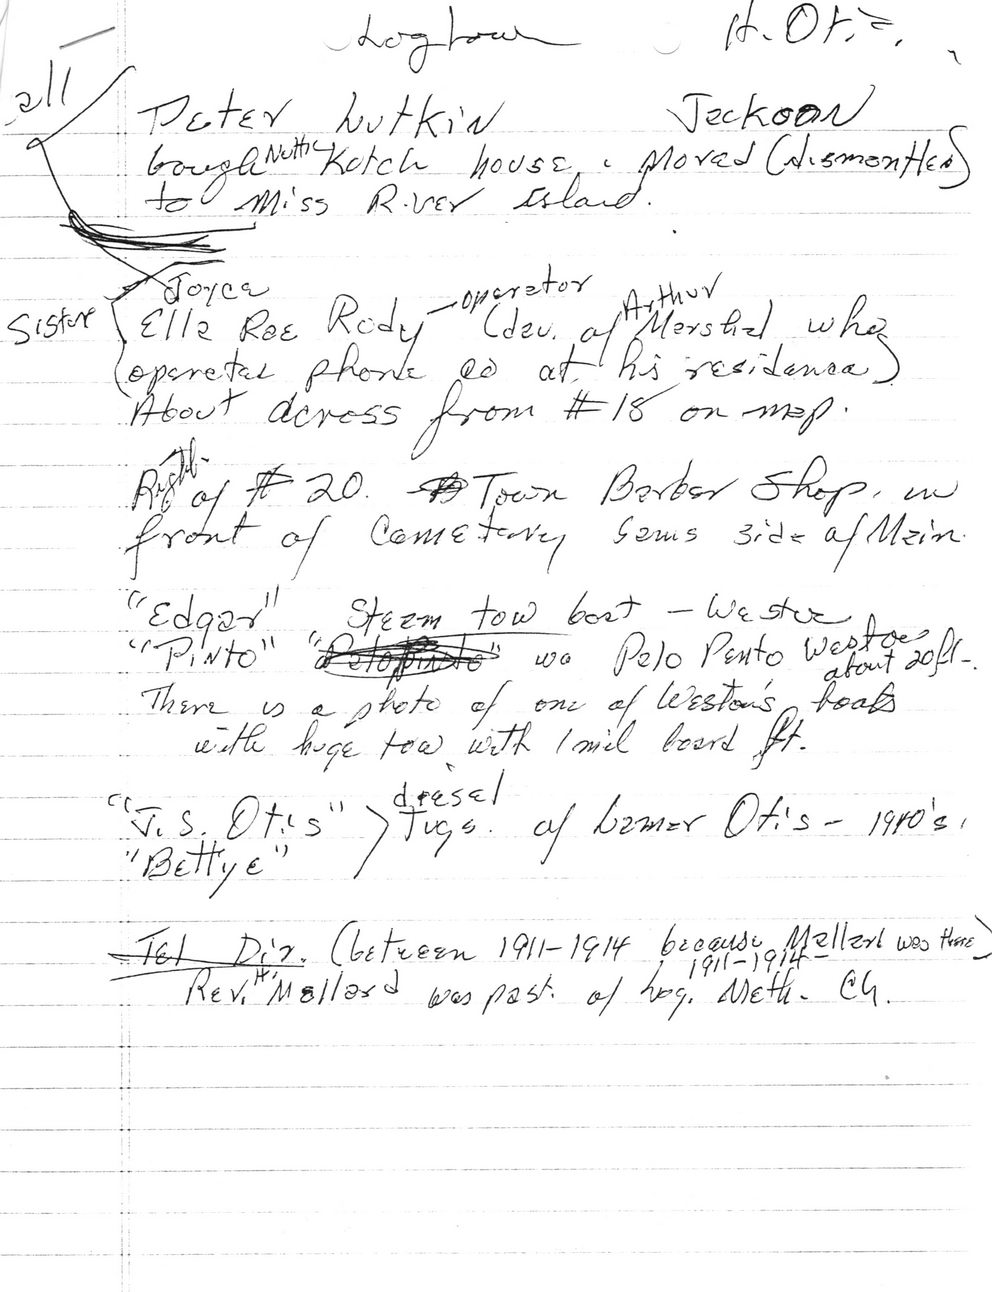 Logtown H. Otis
all
Peter Lutkin Jackson
bough Nuttie Kotch house & moved (dismantled)
to Miss River Island.
Joyce
Sister Ella Rae Rody - operator (dau. of Arthur Marshal who
operated phone co at his residence)
About across from #18 on map.
Right of #20. Town Barber Shop, in
front of Cemetary same side of Main.
"Edgar" Steam tow boat - Weston
"Pinto" "Palo Pinto" was Palo Pento Weston about 20 ft.
There is a photo of one of Weston's boats
with huge tow with 1 mil board ft.
"J. S. Otis" > diesel Tugs. of Lamar Otis - 1940's.
"Bettye"
Tel Dir. (between 1911-1914 because Mallard was there)
1911-1914-
Rev. H. Mallard was past. of Log. Meth. Ch.